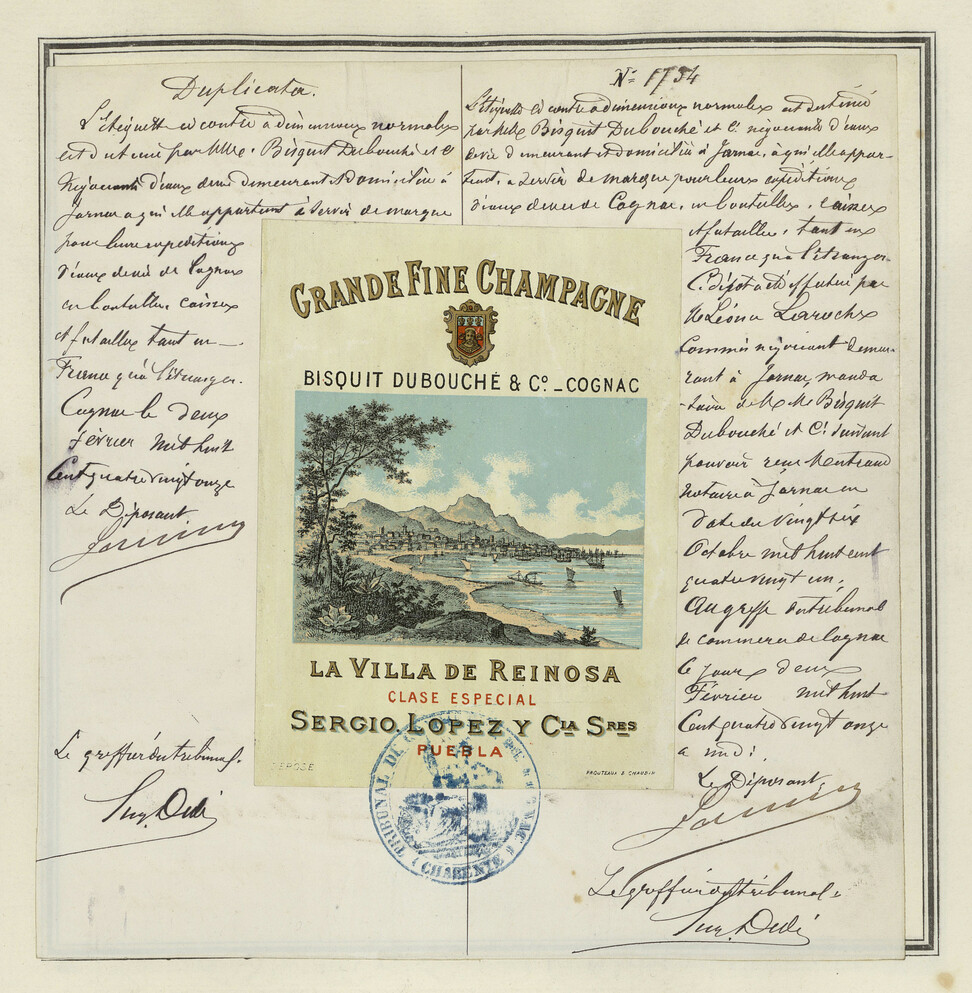 Duplicata.
L'étiquette ci contre à dimensions normales
est destinée par MM. Bisquit Dubouché et Cie
Négociants d'eaux de vie demeurant et domiciliés à
Jarnac a qui elle appartient à servir de marque
pour leurs expéditions
d'eaux de vie de Cognac
en bouteilles, caisses
et futailles tant en
France qu'à l'étranger.
Cognac le deux
Février mil huit
Cent quatre vingt onze
Le Déposant
Le greffier du tribunal.
Nº 1754
L'étiquette ci contre à dimensions normales est destinée
par MM. Bisquit Dubouché et Cie négociants d'eaux
de vie demeurant et domiciliés à Jarnac, à qui elle appar-
tient, a servir de marque pour leurs expéditions
d'eaux de vie de Cognac, en bouteilles, caisses
et futailles, tant en
France qu'à l'étranger.
Ce dépôt a été effectué par
M. Léonce Laroche
Commis négociant demeu-
rant à Jarnac, manda
-taire de MM. Bisquit
Dubouché et Cie suivant
pouvoir reçu
notaire à Jarnac en
date du vingt six
Octobre mil huit cent
quatre vingt un.
Au greffe du tribunal
de commerce de Cognac
le jour deux
Février mil huit
Cent quatre vingt onze
a midi.
Le Déposant
Le greffier du tribunal.
GRANDE FINE CHAMPAGNE
BISQUIT DUBOUCHÉ & Cº._COGNAC
LA VILLA DE REINOSA
CLASE ESPECIAL
SERGIO LOPEZ Y CIA SRES
PUEBLA
DÉPOSÉ
PROUTEAUX & CHAUDIN
TRIBUNAL DE
CHARENTE